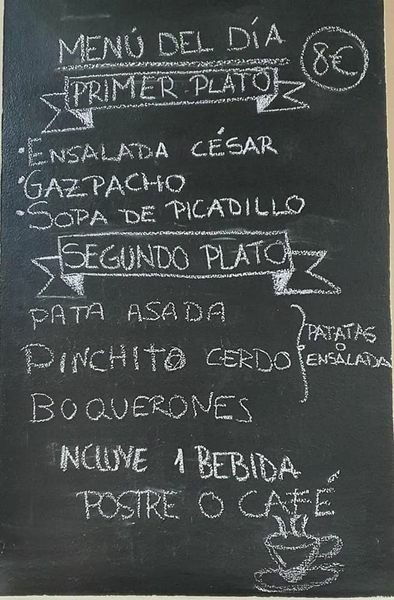 MENÚ DEL DÍA
8€
PRIMER PLATO
·ENSALADA CÉSAR
·GAZPACHO
·SOPA DE PICADILLO
SEGUNDO PLATO
PATA ASADA
PINCHITO CERDO
BOQUERONES
PATATAS
O
ENSALADA
INCLUYE 1 BEBIDA
POSTRE O CAFÉ